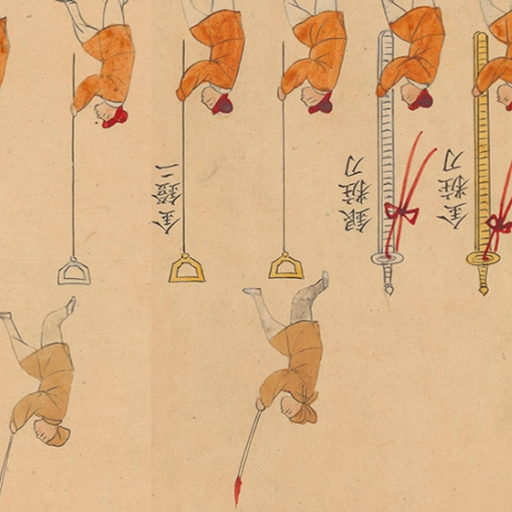 金鐙二
銀粧刀
金粧刀